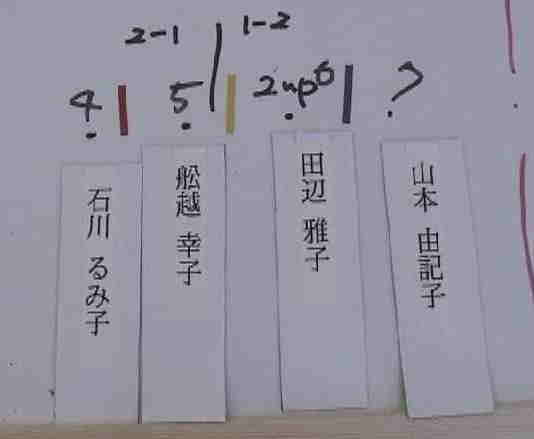 2-1 1-2
4 5 2up6 7
石川 るみ子
舩越 幸子
田辺 雅子
山本 由記子